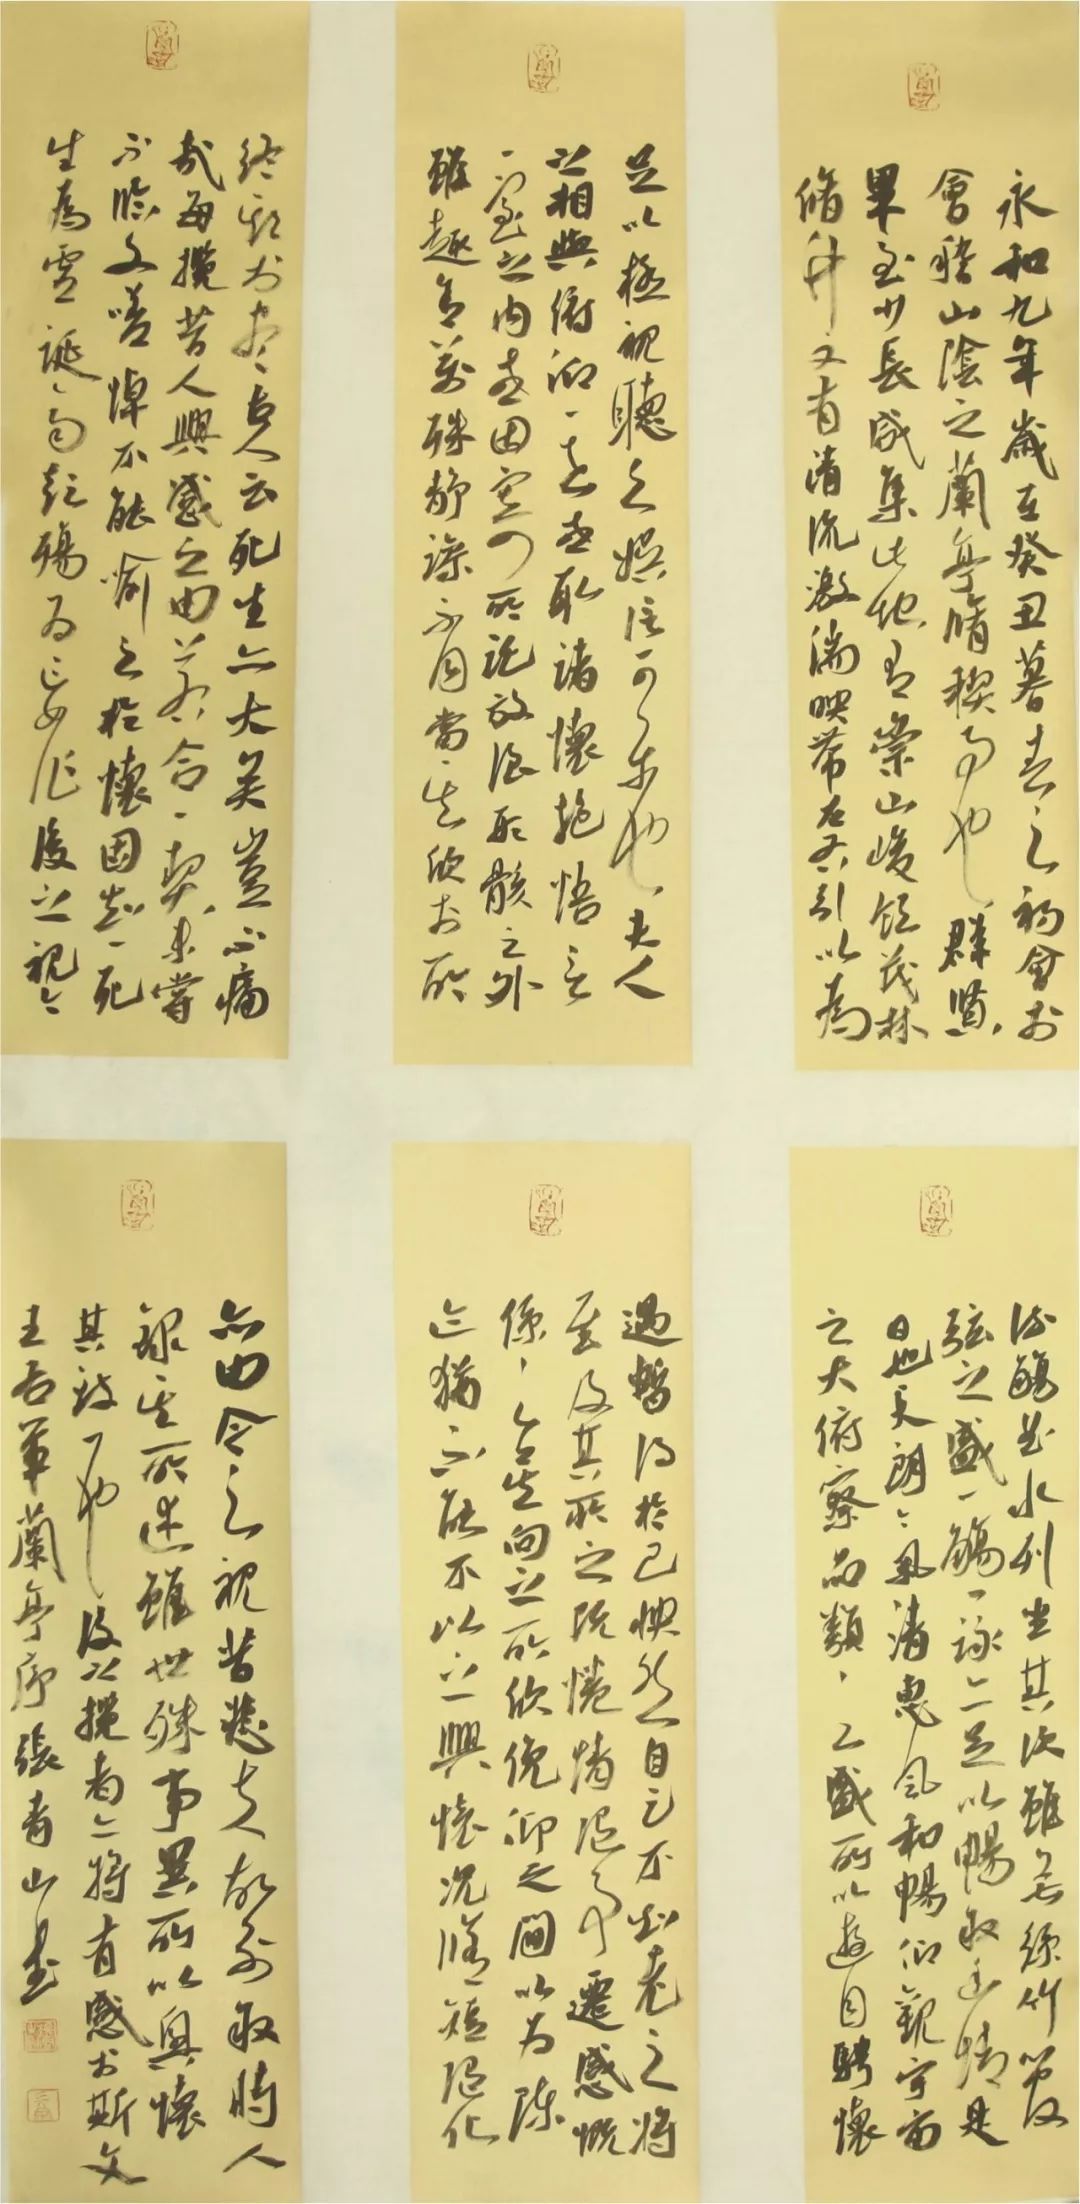 永和九年歲在癸丑暮春之初會於
會稽山陰之蘭亭脩稧事也群賢
畢至少長咸集此地有崇山峻領茂林
脩竹又有清流激湍映帶左右引以為
流觴曲水列坐其次雖無絲竹管
弦之盛一觴一詠亦足以暢敘幽情是
日也天朗氣清惠風和暢仰觀宇宙
之大俯察品類之盛所以遊目騁懷
足以極視聽之娛信可樂也夫人
之相與俯仰一世或取諸懷抱悟言
一室之內或因寄所託放浪形骸之外
雖趣舍萬殊靜躁不同當其欣於所
遇暫得於己怏然自足不知老之將
至及其所之既惓情隨事遷感慨
係之矣向之所欣俛仰之間以為陳
迹猶不能不以之興懷況脩短隨化
終期於盡古人云死生亦大矣豈不痛
哉每攬昔人興感之由若合一契未嘗
不臨文嗟悼不能喻之於懷固知一死
生為虛誕齊彭殤為妄作後之視今
亦由今之視昔悲夫故列敘時人
錄其所述雖世殊事異所以興懷
其致一也後之攬者亦將有感於斯文
王右軍蘭亭序張青山書